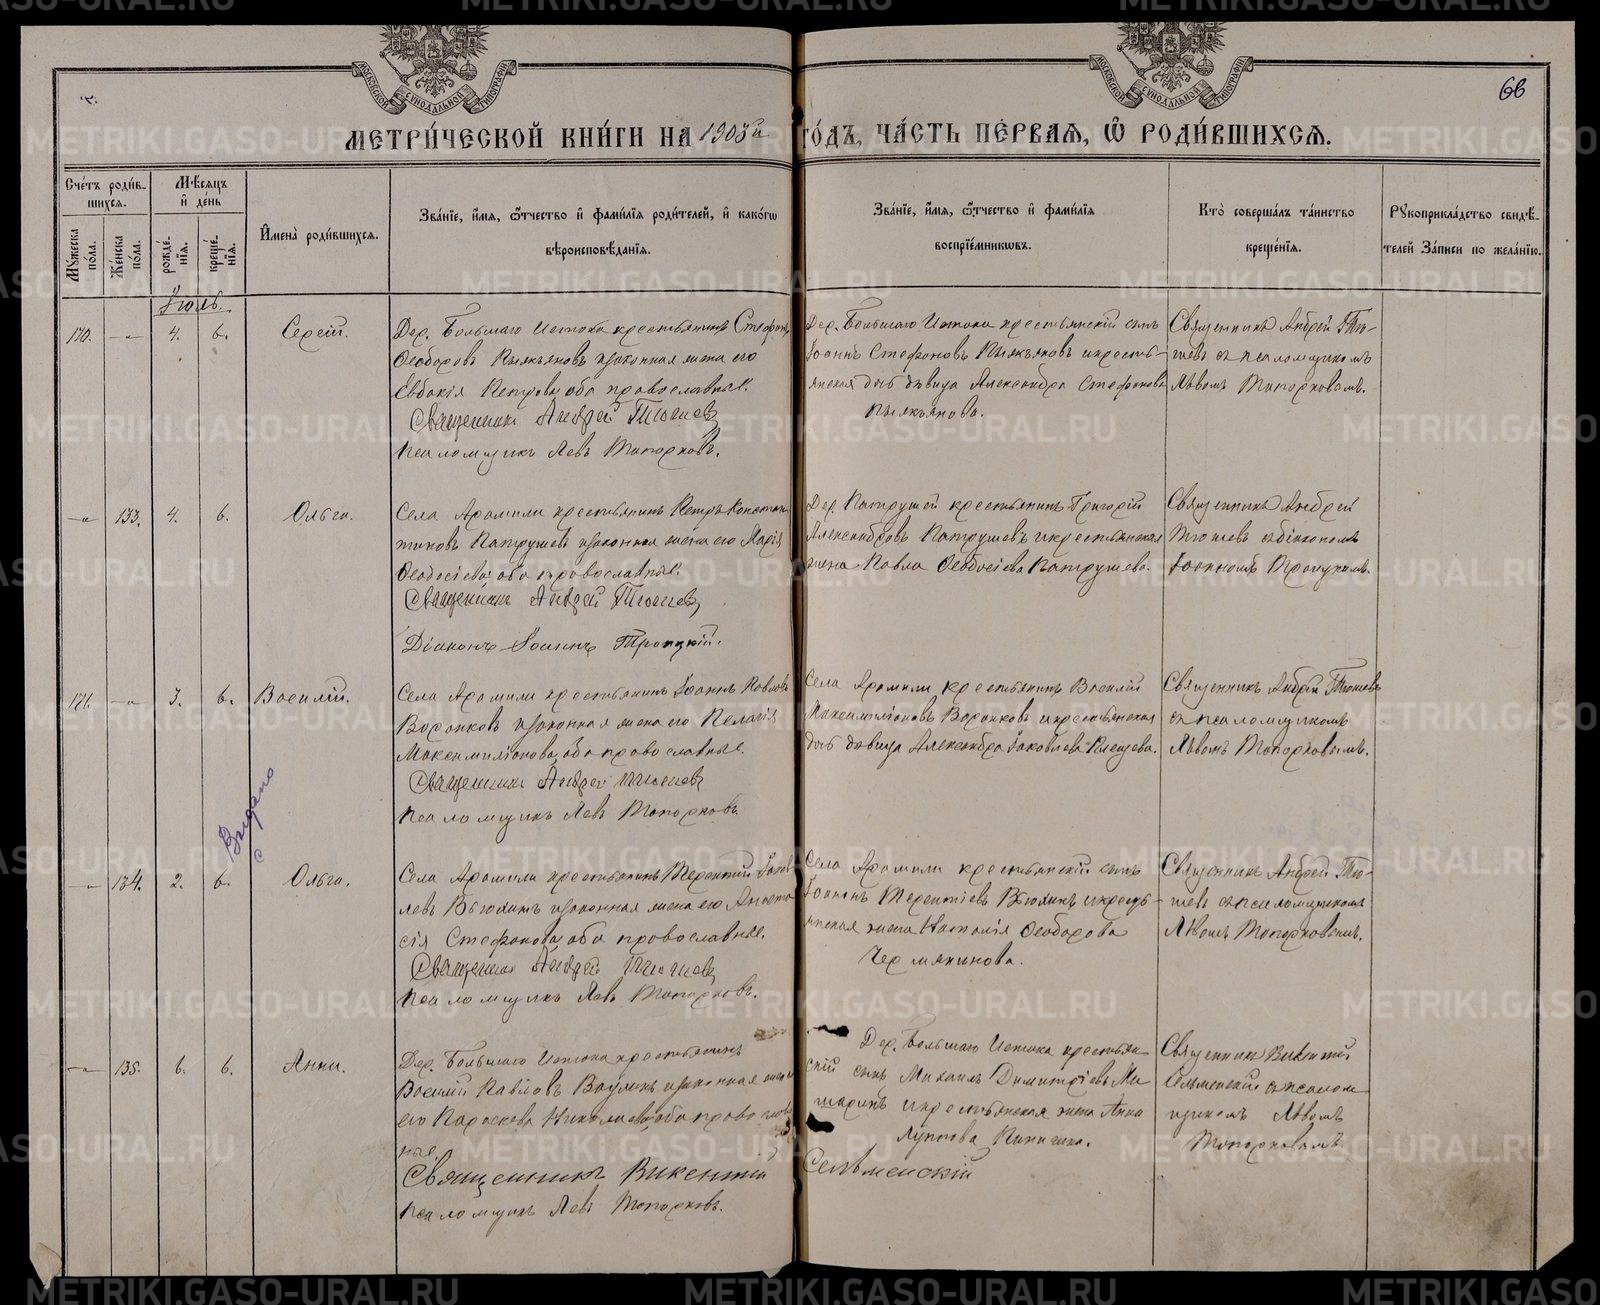 66
МЕТРИ́ЧЕСКОЙ КНИ́ГИ НА 1903й ГО́ДЪ, ЧА́СТЬ ПЕ́РВАЯ, Ѿ РОДИ́ВШИХСЯ.
Сче́тъ роди́в-
шихся.
Му́жеска по́ла.
Же́нска по́ла.
Мѣ́сяцъ
и҆ де́нь
рожде́-
нїя.
креще́-
нїя.
И҆мена̀ роди́вшихся.
Зва́нїе, и҆́мя, ѻ҆́тчество и҆ фами́лїя роди́телей, и҆ како́гѡ
вѣроисповѣ́данїя.
Зва́нїе, и҆́мя, ѻ҆́тчество и҆ фами́лїя
воспрїе́мникѡвъ.
Кто̀ соверша́лъ та́инство
креще́нїя.
Рꙋкоприкла́дство свидѣ́-
телей За́писи по жела́нїю.
Іюль.
170. —„— 4. 6. Сергій.
Дер. Большаго Истока крестьянинъ Стефанъ
Ѳеодоровъ Пьянковъ и законная жена его
Евдокія Петрова, оба православные.
Священникъ Андрей Тюшевъ
Псаломщикъ Левъ Топорковъ.
Дер. Большаго Истока крестьянскій сынъ
Іоаннъ Стефановъ Пьянковъ и кресть-
янская дочь девица Александра Стефанова
Пьянкова.
Священникъ Андрей Тю-
шевъ съ псаломщикомъ
Львомъ Топорковымъ.
—„— 133. 4. 6. Ольга.
Села Арамили крестьянинъ Петръ Констан-
тиновъ Патрушевъ и законная жена его Марія
Ѳеодосіева, оба православные.
Священникъ Андрей Тюшевъ
Діаконъ Іоаннъ Троицкій.
Дер. Патрушей крестьянинъ Григорій
Александровъ Патрушевъ и крестьянская
жена Павла Ѳеодосіева Патрушева.
Священникъ Андрей
Тюшевъ съ діакономъ
Іоанномъ Троицкимъ.
171. —„— 3. 6. Василій.
Села Арамили крестьянинъ Іоаннъ Павловъ
и законная жена его Пелагія
Максимиліонова, оба православные.
Священникъ Андрей Тюшевъ
Псаломщикъ Левъ Топорковъ.
Села Арамили крестьянинъ Василій
Максимиліоновъ и крестьянская
дочь девица Александра Іаковлева Клещева.
Священникъ Андрей Тюшевъ
съ псаломщикомъ
Львомъ Топорковымъ.
Выдано
—„— 134. 2. 6. Ольга.
Села Арамили крестьянинъ Терентій Іаков-
левъ Вьюхинъ и законная жена его Анаста-
сія Стефанова, оба православные.
Священникъ Андрей Тюшевъ
Псаломщикъ Левъ Топорковъ.
Села Арамили крестьянскій сынъ
Іоаннъ Терентіевъ Вьюхинъ и кресть-
янская жена Наталія Ѳеодорова
Чермянинова.
Священникъ Андрей Тю-
шевъ съ псаломщикомъ
Львомъ Топорковымъ.
—„— 135. 6. 6. Анна.
Дер. Большаго Истока крестьянинъ
Василій Павловъ и законная жена
его Параскева Николаева, оба православ-
ные.
Священникъ Викентій Сельменскій
Псаломщикъ Левъ Топорковъ.
Дер. Большаго Истока крестьян-
скій сынъ Михаилъ Димитріевъ
и крестьянская жена Анна
Священникъ Викентій
Сельменскій съ псалом-
щикомъ Львомъ
Топорковымъ.